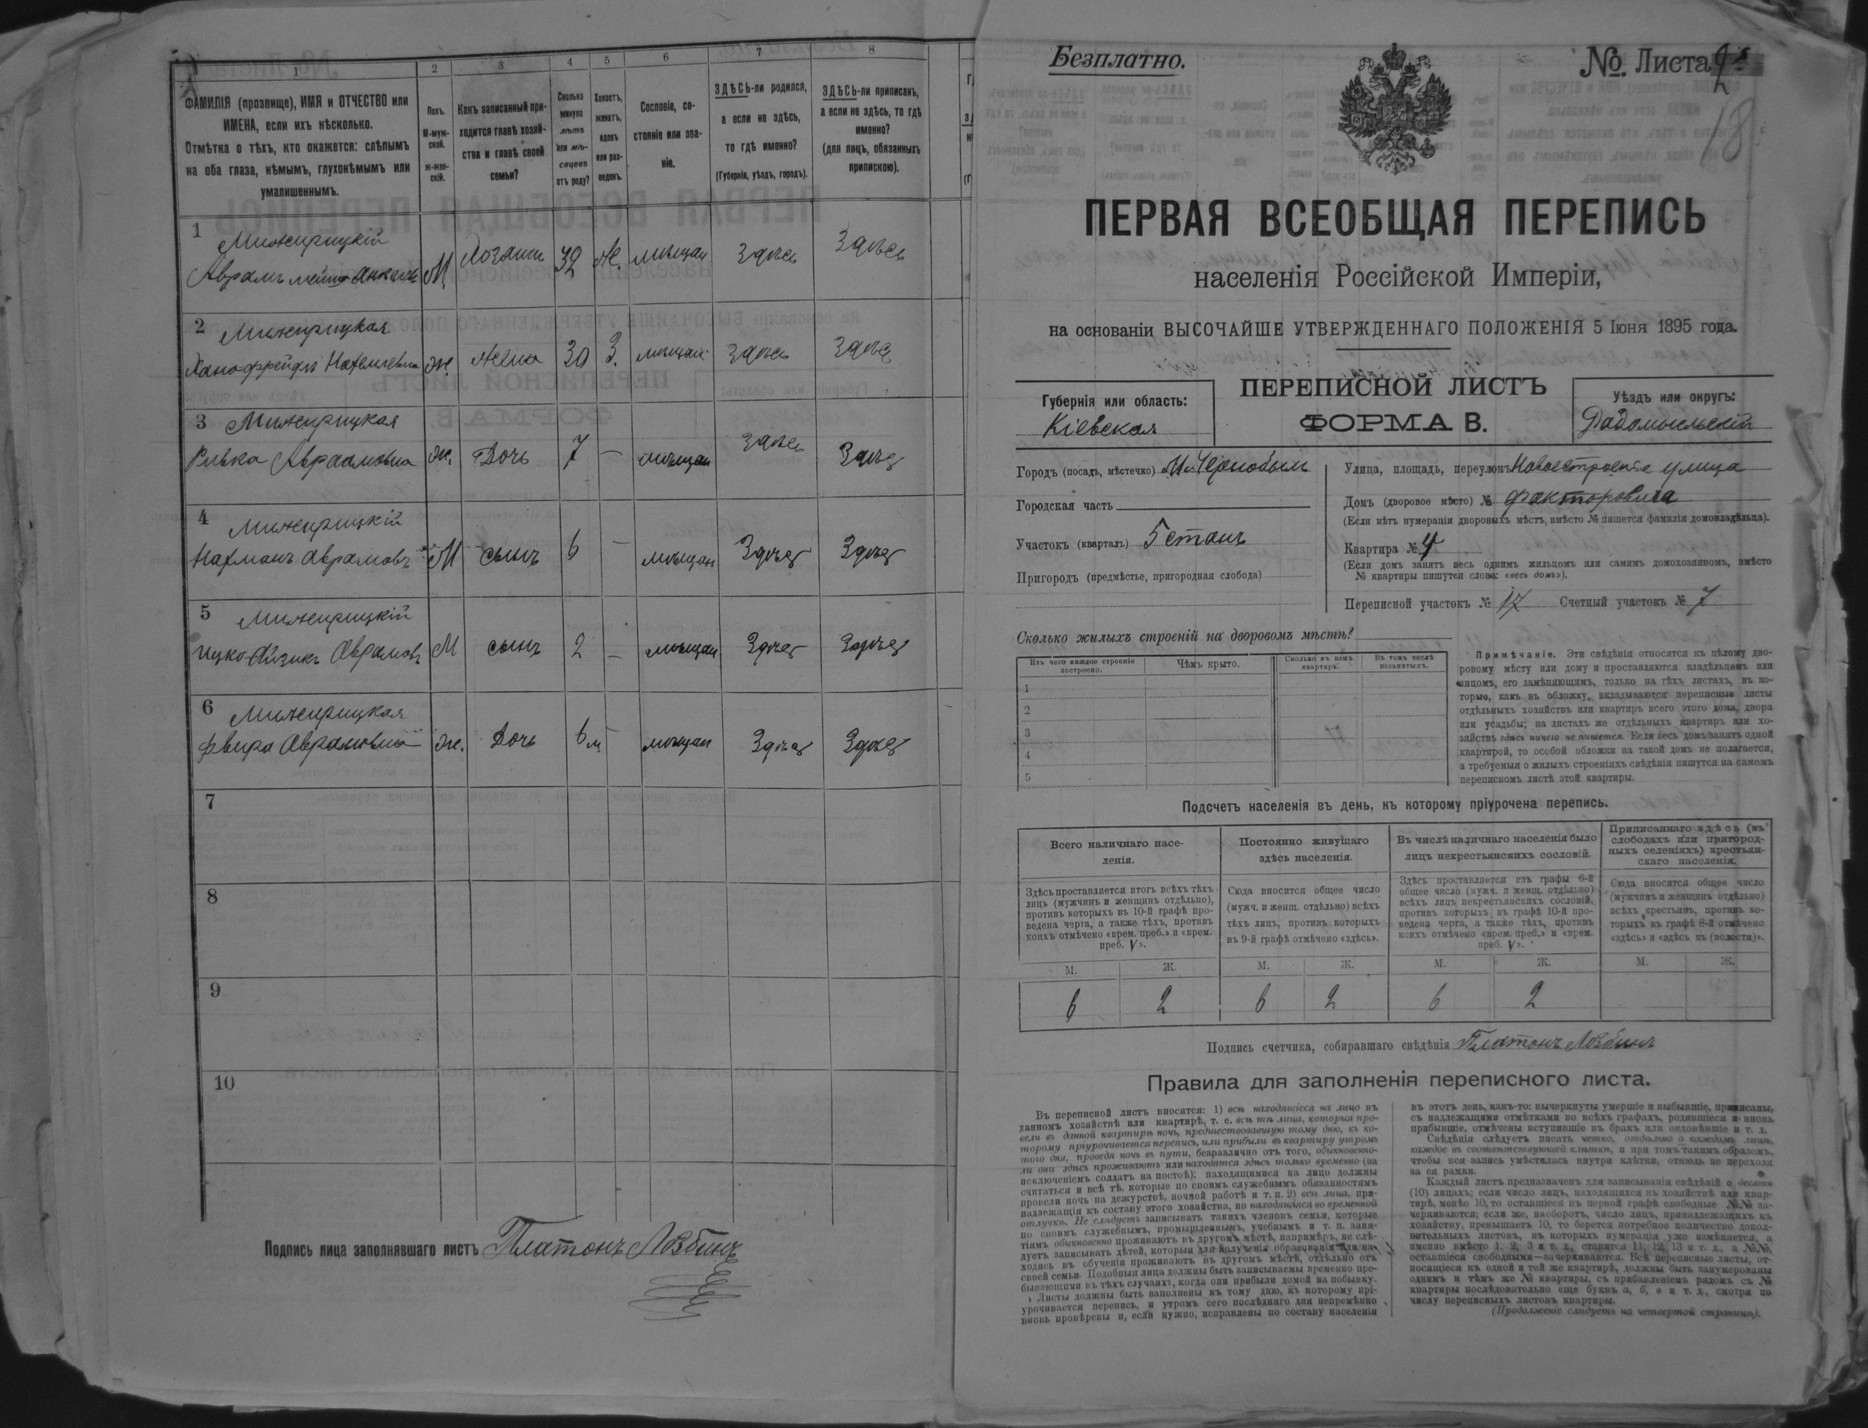 1
2
3
4
5
6
7
8
ФАМИЛІЯ (прозвище), ИМЯ и ОТЧЕСТВО или
ИМЕНА, если ихъ нѣсколько.
Отмѣтка о тѣхъ, кто окажется: слѣпымъ
на оба глаза, нѣмымъ, глухонѣмымъ или
умалишеннымъ.
Полъ.
М-муж-
ской.
Ж-жен-
скій.
Какъ записанный при-
ходится главѣ хозяй-
ства и главѣ своей
семьи?
Сколько
минуло
лѣтъ
или мѣ-
сяцевъ
отъ роду?
Холостъ,
женатъ,
вдовъ
или раз-
веденъ.
Сословіе, со-
стояніе или зва-
ніе.
ЗДѢСЬ-ли родился,
а если не здѣсь,
то гдѣ именно?
(Губернія, уѣздъ, городъ).
ЗДѢСЬ-ли приписанъ,
а если не здѣсь, то гдѣ
именно?
(для лицъ, обязанныхъ
припискою).
1 Миниерицкій
Аврамъ М 32 мѣщан Здѣсь Здѣсь
2 Миниерицкая
ж. жена 30 З. мѣщан Здѣсь Здѣсь
3 Миниерицкая
Ривка Аврамовна ж. Дочь 7 — мѣщан Здѣсь Здѣсь
4 Миниерицкій
Нахманъ Аврамовъ М сынъ 6 — мѣщан Здѣсь Здѣсь
5 Миниерицкій
Ицко-Айзикъ Аврамовъ М сынъ 2 — мѣщан Здѣсь Здѣсь
6 Миниерицкая
Двира Аврамовна ж. Дочь 6 м мѣщан Здѣсь Здѣсь
7
8
9
10
Подпись лица заполнявшаго листъ Платонъ
Безплатно.
№ Листа
18
ПЕРВАЯ ВСЕОБЩАЯ ПЕРЕПИСЬ
населенія Россійской Имперіи,
на основаніи ВЫСОЧАЙШЕ УТВЕРЖДЕННАГО ПОЛОЖЕНІЯ 5 Іюня 1895 года.
ПЕРЕПИСНОЙ ЛИСТЪ
ФОРМА В.
Губернія или область:
Кіевская
Уѣздъ или округъ:
Радомысльскій
Городъ (посадъ, мѣстечко) м. Чернобыль
Городская часть
Участокъ (кварталъ) 5 станъ
Пригородъ (предмѣстье, пригородная слобода)
Улица, площадь, переулокъ Новостроение улица
Домъ (дворовое мѣсто) № Факторовича
(Если нѣтъ нумераціи дворовыхъ мѣстъ, вмѣсто № пишется фамилія домовладѣльца).
Квартира № 4
(Если домъ занятъ весь однимъ жильцомъ или самимъ домохозяиномъ, вмѣсто
№ квартиры пишутся слова: «весь домъ»).
Переписной участокъ № 17 Счетный участокъ № 7
Сколько жилыхъ строеній на дворовомъ мѣстѣ?
Изъ чего каждое строеніе
построено.
Чѣмъ крыто.
Сколько въ немъ
квартиръ.
Въ томъ числѣ
незанятыхъ.
1
2
3
4
5
Примѣчаніе. Эти свѣдѣнія относятся къ цѣлому дво-
ровому мѣсту или дому и проставляются владѣльцемъ или
лицомъ, его замѣняющимъ, только на тѣхъ листахъ, въ ко-
торые, какъ въ обложку, вкладываются переписные листы
отдѣльныхъ хозяйствъ или квартиръ всего этого дома, двора
или усадьбы; на листахъ же отдѣльныхъ квартиръ или хо-
зяйствъ здѣсь ничего не пишется. Если весь домъ занятъ одной
квартирой, то особой обложки на такой домъ не полагается,
а требуемыя о жилыхъ строеніяхъ свѣдѣнія пишутся на самомъ
переписномъ листѣ этой квартиры.
Подсчетъ населенія въ день, къ которому пріурочена перепись.
Всего наличнаго насе-
ленія.
Постоянно живущаго
здѣсь населенія.
Въ числѣ наличнаго населенія было
лицъ некрестьянскихъ сословій.
Приписаннаго здѣсь (въ
слободахъ или пригород-
ныхъ селеніяхъ) крестьян-
скаго населенія.
Здѣсь проставляется итогъ всѣхъ тѣхъ
лицъ (мужчинъ и женщинъ отдѣльно),
противъ которыхъ въ 10-й графѣ про-
ведена черта, а также тѣхъ, противъ
коихъ отмѣчено «врем. преб.» и «врем.
преб. V».
Сюда вносится общее число
(мужч. и женщ. отдѣльно) всѣхъ
тѣхъ лицъ, противъ которыхъ
въ 9-й графѣ отмѣчено «здѣсь».
Здѣсь проставляется изъ графы 6-й
общее число (мужч. и женщ. отдѣльно)
всѣхъ лицъ некрестьянскихъ сословій,
противъ которыхъ въ графѣ 10-й про-
ведена черта, а также тѣхъ, противъ
коихъ отмѣчено «врем. преб.» и «врем.
преб. V».
Сюда вносится общее число
(мужчинъ и женщинъ отдѣльно)
всѣхъ крестьянъ, противъ ко-
торыхъ въ графѣ 8-й отмѣчено
«здѣсь» и «здѣсь къ (волости)».
М. Ж. М. Ж. М. Ж. М. Ж.
6 2 6 2 6 2
Подпись счетчика, собиравшаго свѣдѣнія Платонъ
Правила для заполненія переписного листа.
Въ переписной листъ вносятся: 1) всѣ находящіеся на лицо въ
данномъ хозяйствѣ или квартирѣ, т. е. всѣ тѣ лица, которыя про-
вели въ данной квартирѣ ночь, предшествовавшую тому дню, къ ко-
торому пріурочивается перепись, или прибыли въ квартиру утромъ
того дня, проведя ночь въ пути, безразлично отъ того, обыкновенно-
ли они здѣсь проживаютъ или находятся здѣсь только временно (за
исключеніемъ солдатъ на постоѣ); находящимися на лицо должны
считаться и всѣ тѣ, которые по своимъ служебнымъ обязанностямъ
провели ночь на дежурствѣ, ночной работѣ и т. п. 2) всѣ лица, при-
надлежащія къ составу этого хозяйства, но находящіяся во временной
отлучкѣ. Не слѣдуетъ записывать такихъ членовъ семьи, которые
по своимъ служебнымъ, промышленнымъ, учебнымъ и т. п. заня-
тіямъ обыкновенно проживаютъ въ другомъ мѣстѣ, напримѣръ, не слѣ-
дуетъ записывать дѣтей, которыя для полученія образованія или на-
ходясь въ обученіи проживаютъ въ другомъ мѣстѣ, отдѣльно отъ
своей семьи. Подобныя лица должны быть записываемы временно пре-
бывающими въ тѣхъ случаяхъ, когда они прибыли домой на побывку.
Листы должны быть заполнены къ тому дню, къ которому прі-
урочивается перепись, и утромъ сего послѣдняго дня непремѣнно
вновь провѣрены и, если нужно, исправлены по составу населенія
въ этотъ день, какъ-то: вычеркнуты умершіе и выбывшіе, приписаны,
съ надлежащими отмѣтками во всѣхъ графахъ, родившіеся и вновь
прибывшіе, отмѣчены вступившіе въ бракъ или овдовѣвшіе и т. д.
Свѣдѣнія слѣдуетъ писать четко, отдѣльно о каждомъ лицѣ,
каждое въ соотвѣтствующей клѣткѣ, и при томъ такимъ образомъ,
чтобы вся запись умѣстилась внутри клѣтки, отнюдь не переходя
за ея рамки.
Каждый листъ предназначенъ для записыванія свѣдѣній о десяти
(10) лицахъ; если число лицъ, находящихся въ хозяйствѣ или квар-
тирѣ, менѣе 10, то оставшіеся въ первой графѣ свободные №№ за-
черкиваются; если же, наоборотъ, число лицъ, принадлежащихъ къ
хозяйству, превышаетъ 10, то берется потребное количество допол-
нительныхъ листовъ, въ которыхъ нумерація уже измѣняется, а
именно вмѣсто 1, 2, 3 и т. д. ставится 11, 12, 13 и т. д., а №№,
оставшіеся свободными—зачеркиваются. Всѣ переписные листы, от-
носящіеся къ одной и той же квартирѣ, должны быть занумерованы
однимъ и тѣмъ же № квартиры, съ прибавленіемъ рядомъ съ №
квартиры послѣдовательно еще буквъ а, б, в и т. д., смотря по
числу переписныхъ листовъ квартиры.
(Продолженіе слѣдуетъ на четвертой страницѣ).